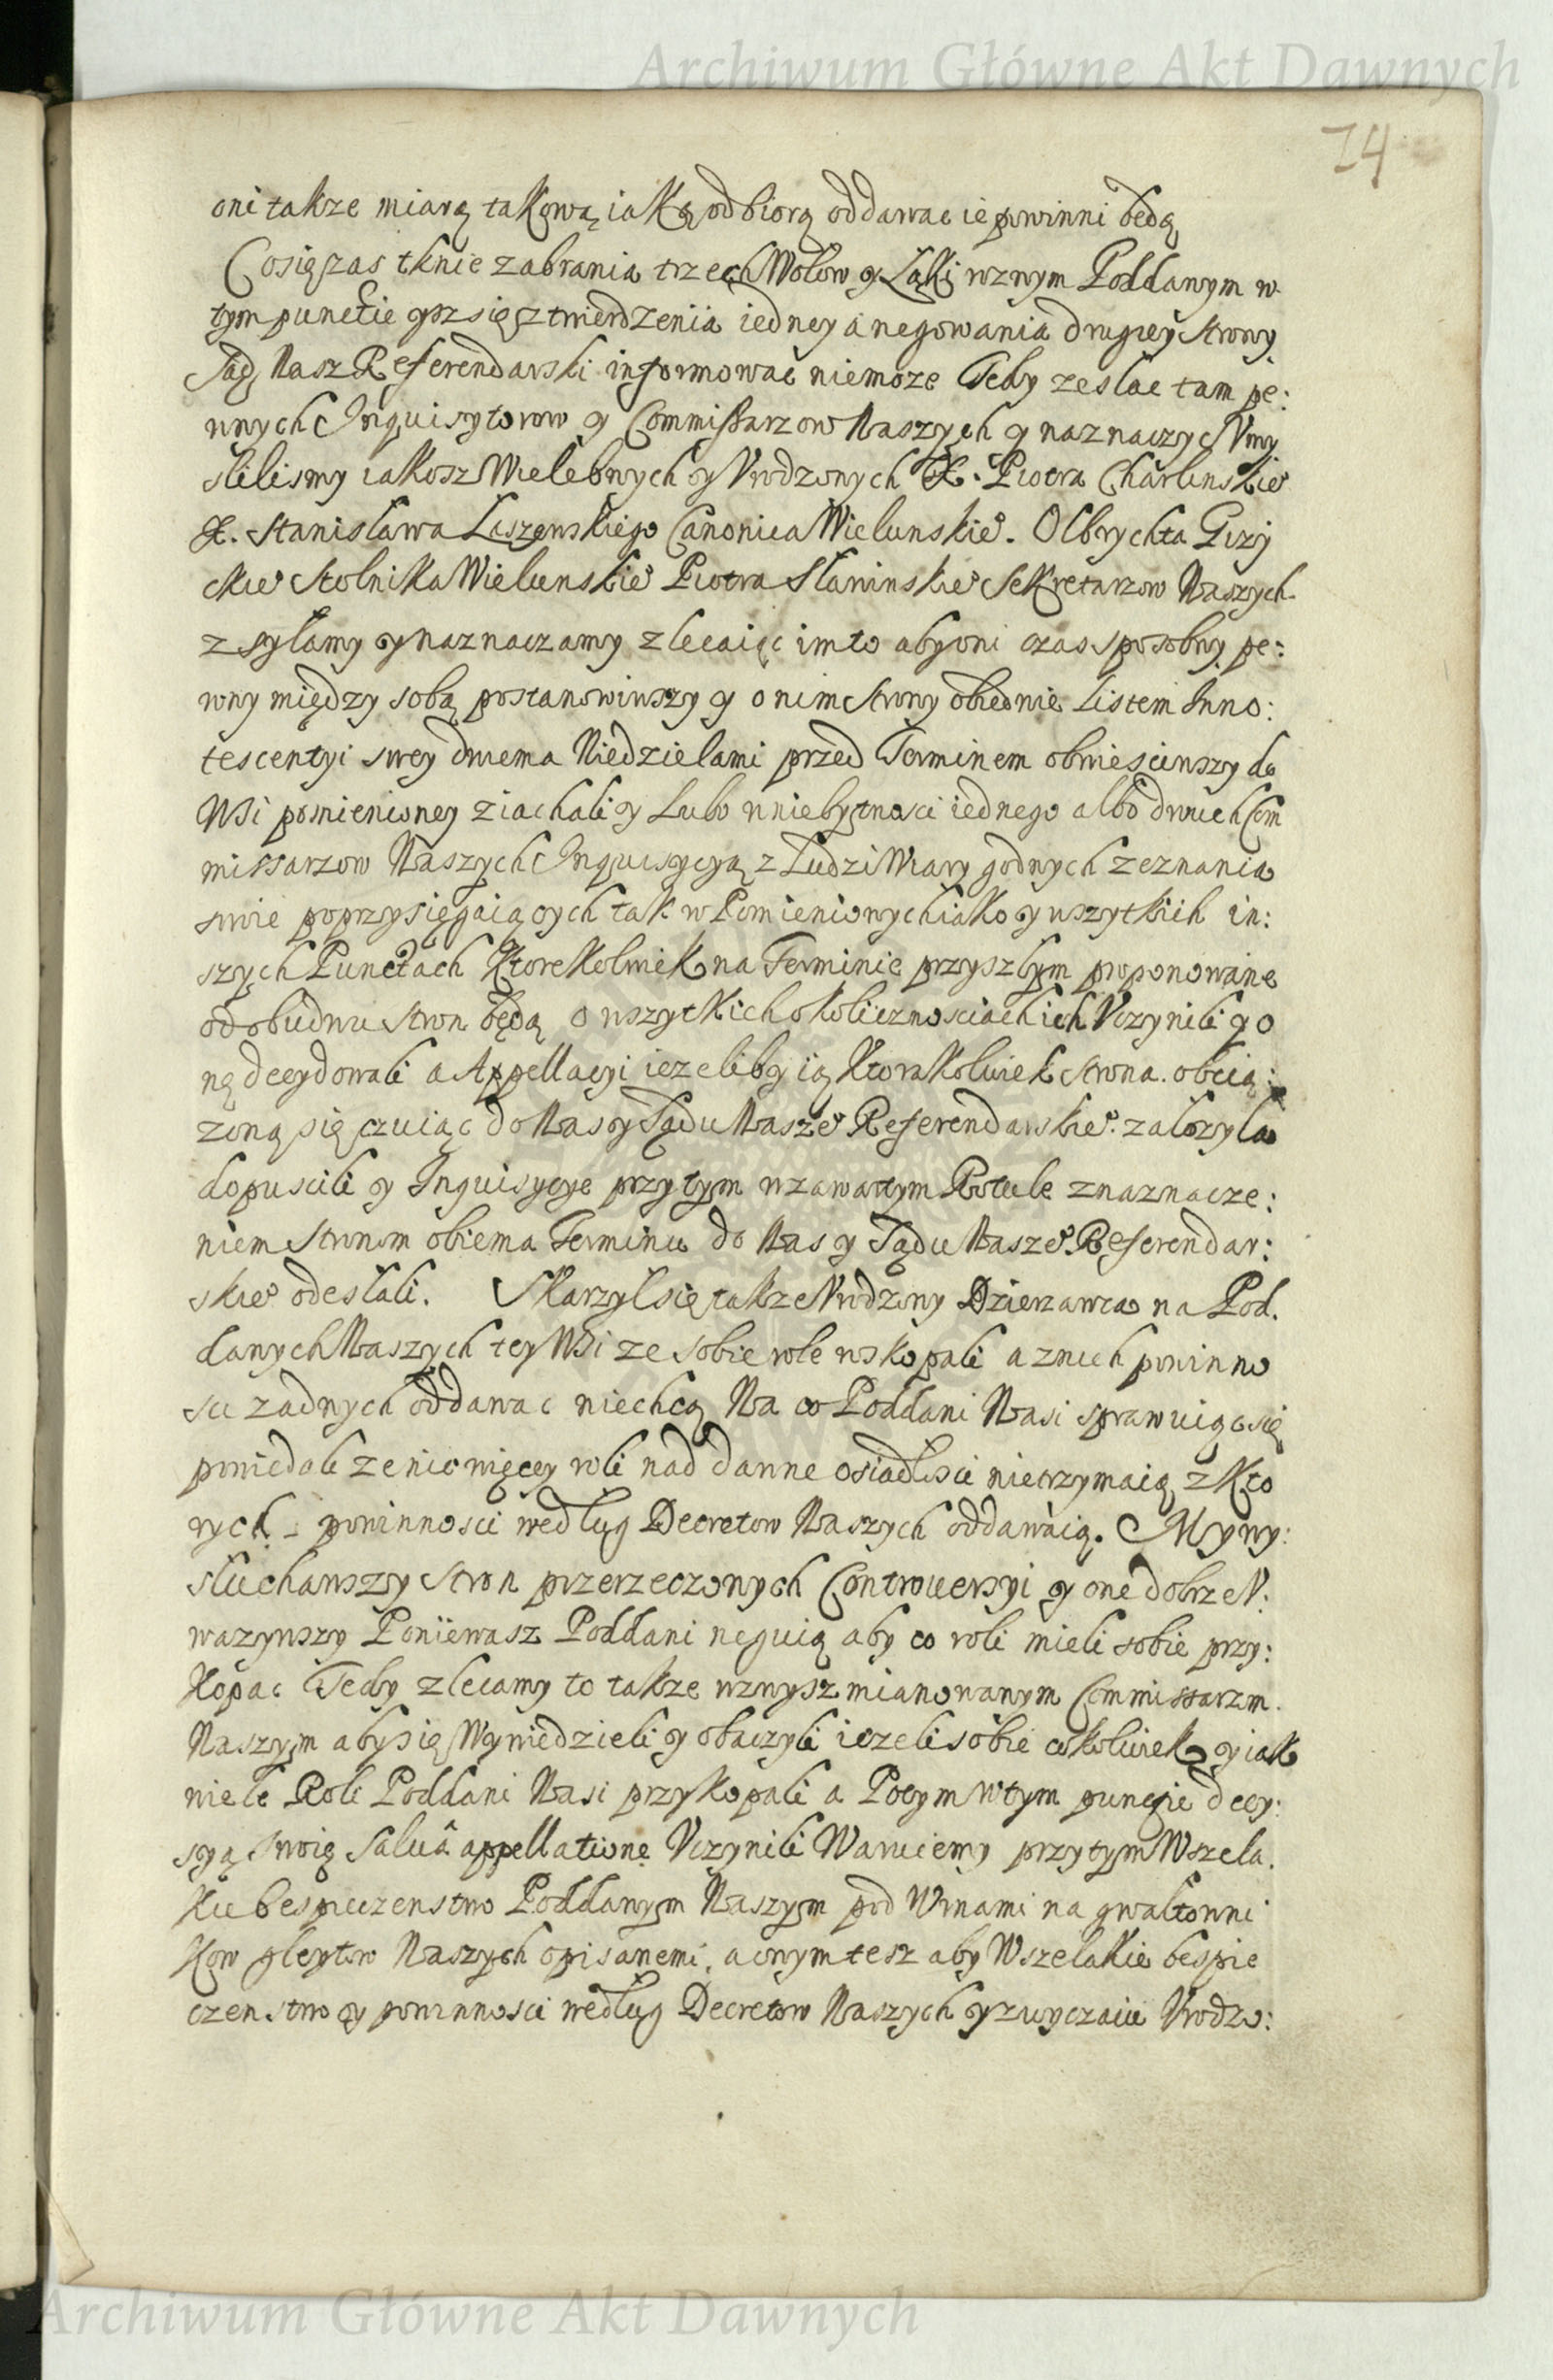 Archiwum Główne Akt Dawnych
74
oni takze miarą takową iaką odbiorą oddawac ie powinni będą
Cosię zas tknie zabrania trzech Wołow y Łąki wznym Poddanym w
tym punctie ysz się z twierdzenia iedney a negowania drugiey strony
Sąd Nasz Referendarski informowac niemoze Tedy zesłac tam pe:
wnych Inquisytorow y Commissarzow Naszych y naznaczyc Vmy
slilismy iakosz Wielebnych y Vrodzonych X. Piotra Charlinskie°
X. Stanisława Canonica Wielunskie°. Olbrychta Gizy
ckie° Stolnika Wielunskie° Piotra Sławinskie° Sekretarzow Naszych
zsyłamy y naznaczamy zlecaiąc im to aby oni czas sposobny pe:
wny między sobą postanowiwszy y o nim strony obiedwie Listem Inno:
tescentyi swey dwiema Niedzielami przed Terminem obwiesciwszy do
Wsi pomienioney ziachali y Lubo w niebytnosci iednego albo dwuch Com
missarzow Naszych Inquisycyą z Ludzi Wiary godnych zeznania
swie poprzysięgaiących tak w Pomienionych iako y wszytkich in:
szych Punctach Ktorekolwiek na Terminie przyszłym proponowane
od obudwu stron będą o wszytkich okolicznosciach ich Vczynili y o
nę decydowali a Appellacyi iezeliby ią Ktorakolwiek strona. obcią:
zoną się czuiąc do Nas y Sądu Nasze° Referendarskie°. załozyła
dopuscili y Inquisycye przytym w zawartym Rotule znaznacze:
niem stronom obiema Terminu do Nas y Sądu Nasze°. Referendar:
skie° odesłali. Skarzył się takze Vrodzony Dzierzawca na Pod.
danych Naszych tey Wsi ze sobie role wskopali a znich powinno
sci zadnych oddawac niechcą Na co Poddani Nasi sprawuiąc się
powiedali ze nic więcey roli nad dawne osiadłosci nietrzymaią z Kto
rych powinnosci według Decretow Naszych oddawaią. My wy:
słuchawszy stron przerzeczonych Controversyi y one dobrze V:
wazywszy Poniewasz Poddani neguią aby co roli mieli sobie przy:
Kopac Tedy zlecamy to takze wznysz mianowanym Commissarzm.
Naszym aby się Wywiedzieli y obaczyli iezeli sobie cokolwiek y iak
wiele Roli Poddani Nasi przykopali a Potym w tym puncie decy:
syą swoię salvâ appellatione Vczynili Waruiemy przytym Wszela.
Kie bespieczenstwo Poddanym Naszym pod Winami na gwałtowni
Kow gleytow Naszych opisanemi, aonym tesz aby Wszelakie bespie
czenstwo y powinnosci według Decretow Naszych y zwyczaiu Vrodzo:
Archiwum Główne Akt Dawnych